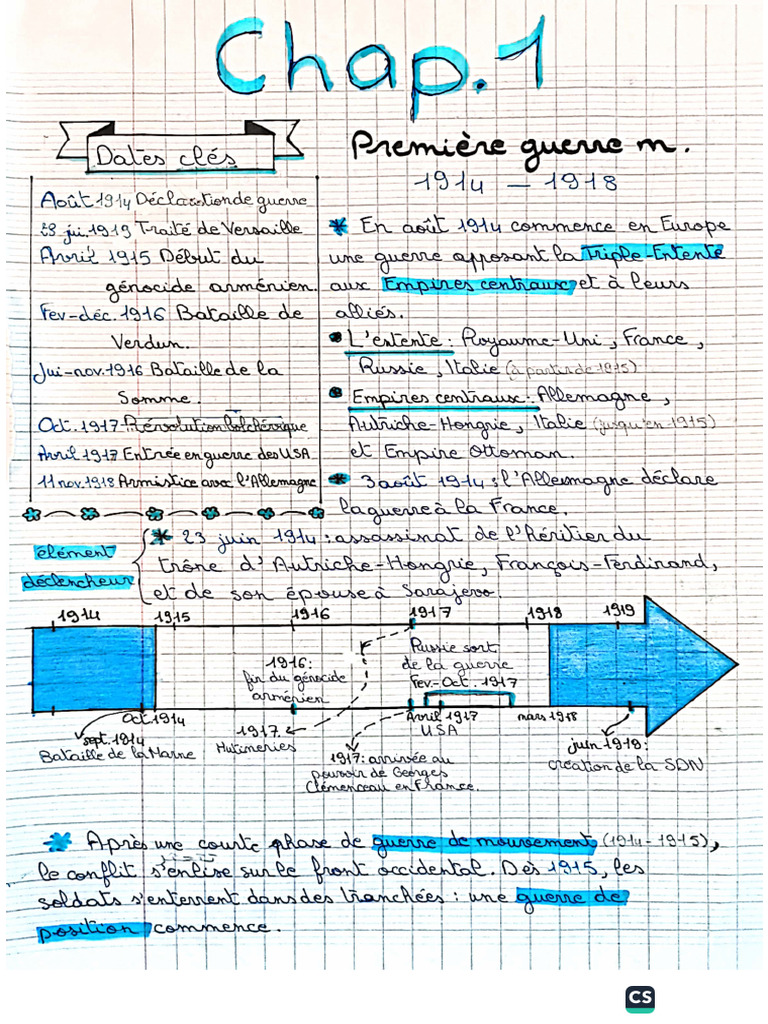 Chap.1
Dates clés
Première guerre m.
1914 – 1918
Août 1914 Déclaration de guerre
23 jui 1919 Traité de Versaille
Avril 1915 Début du
génocide arménien.
Fev-déc. 1916 Bataille de
Verdun.
Jui-nov. 1916 Bataille de la
Somme.
Oct. 1917 Révolution bolchévique
Avril 1917 Entrée en guerre des USA
11 nov. 1918 Armistice avec l'Allemagne
* En août 1914 commence en Europe
une guerre opposant la Triple-Entente
aux Empires centraux et à leurs
alliés.
• L'entente : Royaume-Uni, France,
Russie, Italie (à partir de 1915)
• Empires centraux : Allemagne,
Autriche-Hongrie, Italie (jusqu'en 1915)
et Empire Ottoman.
* 3 août 1914 : l'Allemagne déclare
la guerre à la France.
élément
déclencheur
* 23 juin 1914 : assassinat de l'héritier du
trône d'Autriche-Hongrie, François-Ferdinand,
et de son épouse à Sarajevo.
1914 1915 1916 1917 1918 1919
1916 :
fin du génocide
arménien
Russie sort
de la guerre
Fev-Oct. 1917
Oct 1914
sept. 1914
Bataille de la Marne
1917
Mutineries
Avril 1917
USA
1917 : arrivée au
pouvoir de Georges
Clémenceau en France.
mars 1918
juin 1919 :
création de la SDN
* Après une courte phase de guerre de mouvement (1914-1915),
le conflit s'enlise sur le front occidental. Dès 1915, les
soldats s'enterrent dans des tranchées : une guerre de
position commence.
CS